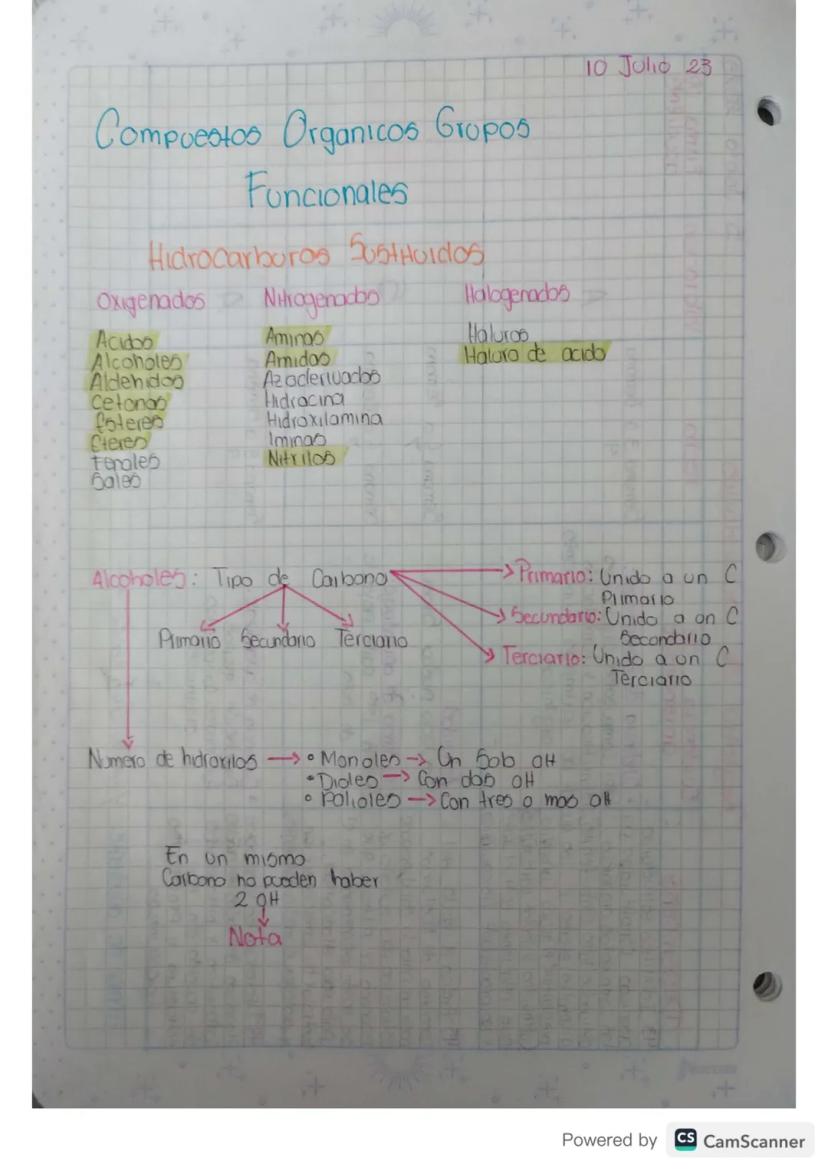 10 Julio 23
Compuestos Organicos Grupos
Funcionales
Hidrocarburos Sustituidos
Oxigenados
Acidos
Alcoholes
Aldehidos
Cetonas
Esteres
Eteres
Fenoles
Sales
Nitrogenados
Aminas
Amidas
Azoderivados
Hidracina
Hidroxilamina
Iminas
Nitrilos
Halogenados
Haluros
Haluro de acido
Alcoholes: Tipo de Carbono
Primario Secundario Terciario
Primario: Unido a un C
Primario
Secundario: Unido a un C
Secundario
Terciario: Unido a un C
Terciario
Numero de hidroxilos → • Monoles → Un Solo OH
• Dioles → Con dos OH
• Polioles → Con tres o mas OH
En un mismo
Carbono no pueden haber
2 OH
Nota
Powered by CS CamScanner